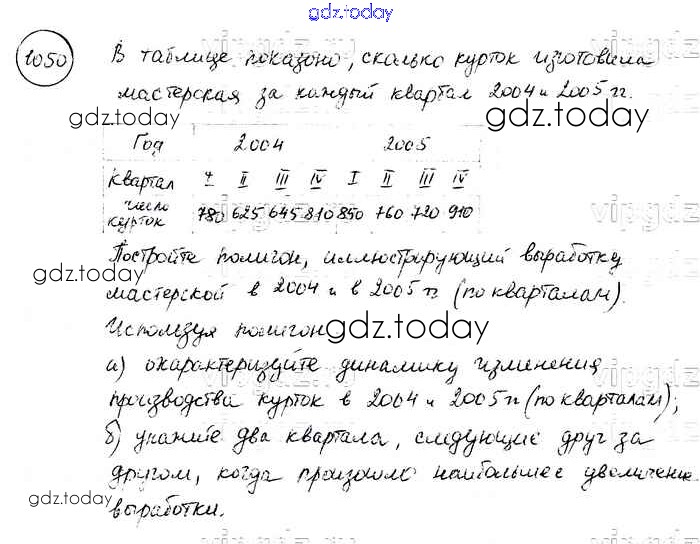 gdz.today
1050 В таблице показано, сколько курток изготовила
мастерская за каждый квартал 2004 и 2005 гг.
gdz.today gdz.today
Год 2004 2005
Квартал I II III IV I II III IV
число курток 780 625 645 810 850 760 720 910
Постройте полигон, иллюстрирующий выработку
gdz.today
мастерской в 2004 и в 2005 гг (по кварталам).
Используя полигон
gdz.today
а) охарактеризуйте динамику изменения
производства курток в 2004 и 2005 гг (по кварталам);
б) укажите два квартала, следующие друг за
другом, когда произошло наибольшее увеличение
gdz.today
выработки.